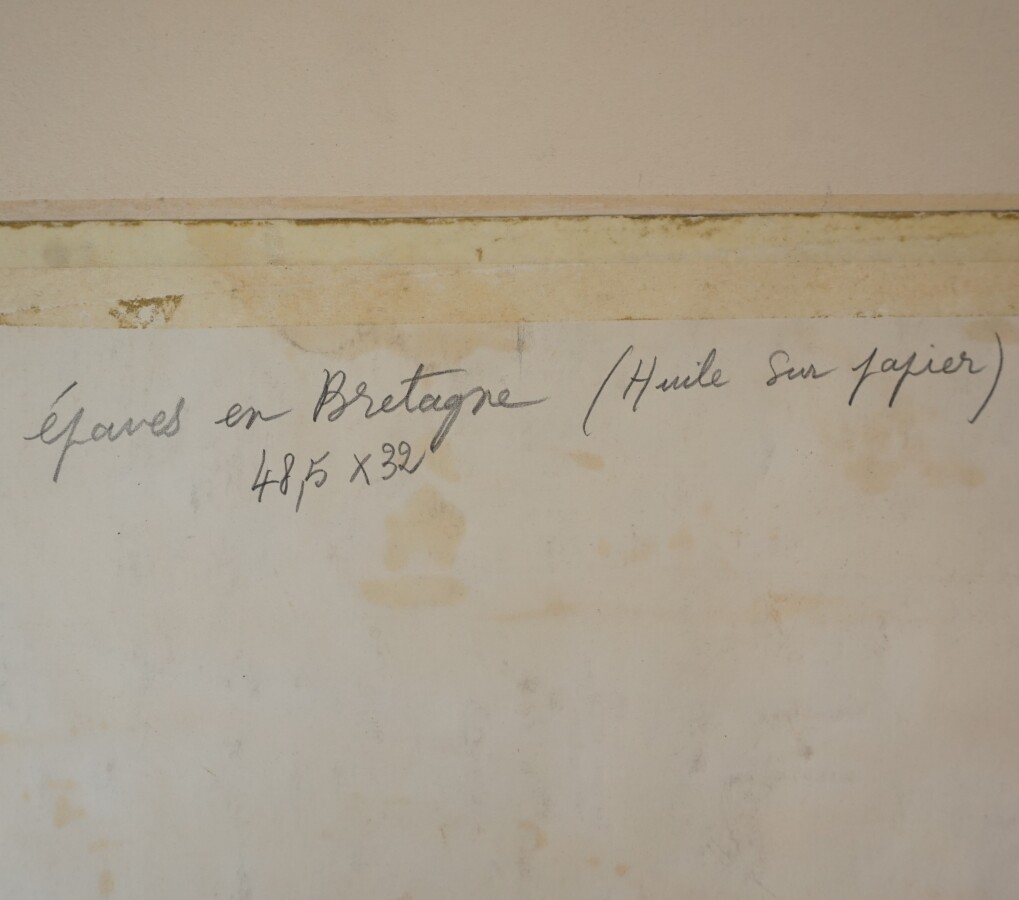 épaves en Bretagne (Huile sur papier)
48,5 x 32